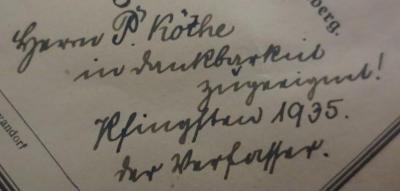 berg.
Herrn P. Köthe
in dankbarkeit
zugeeignet!
Pfingsten 1935.
der Verfasser.
randorf